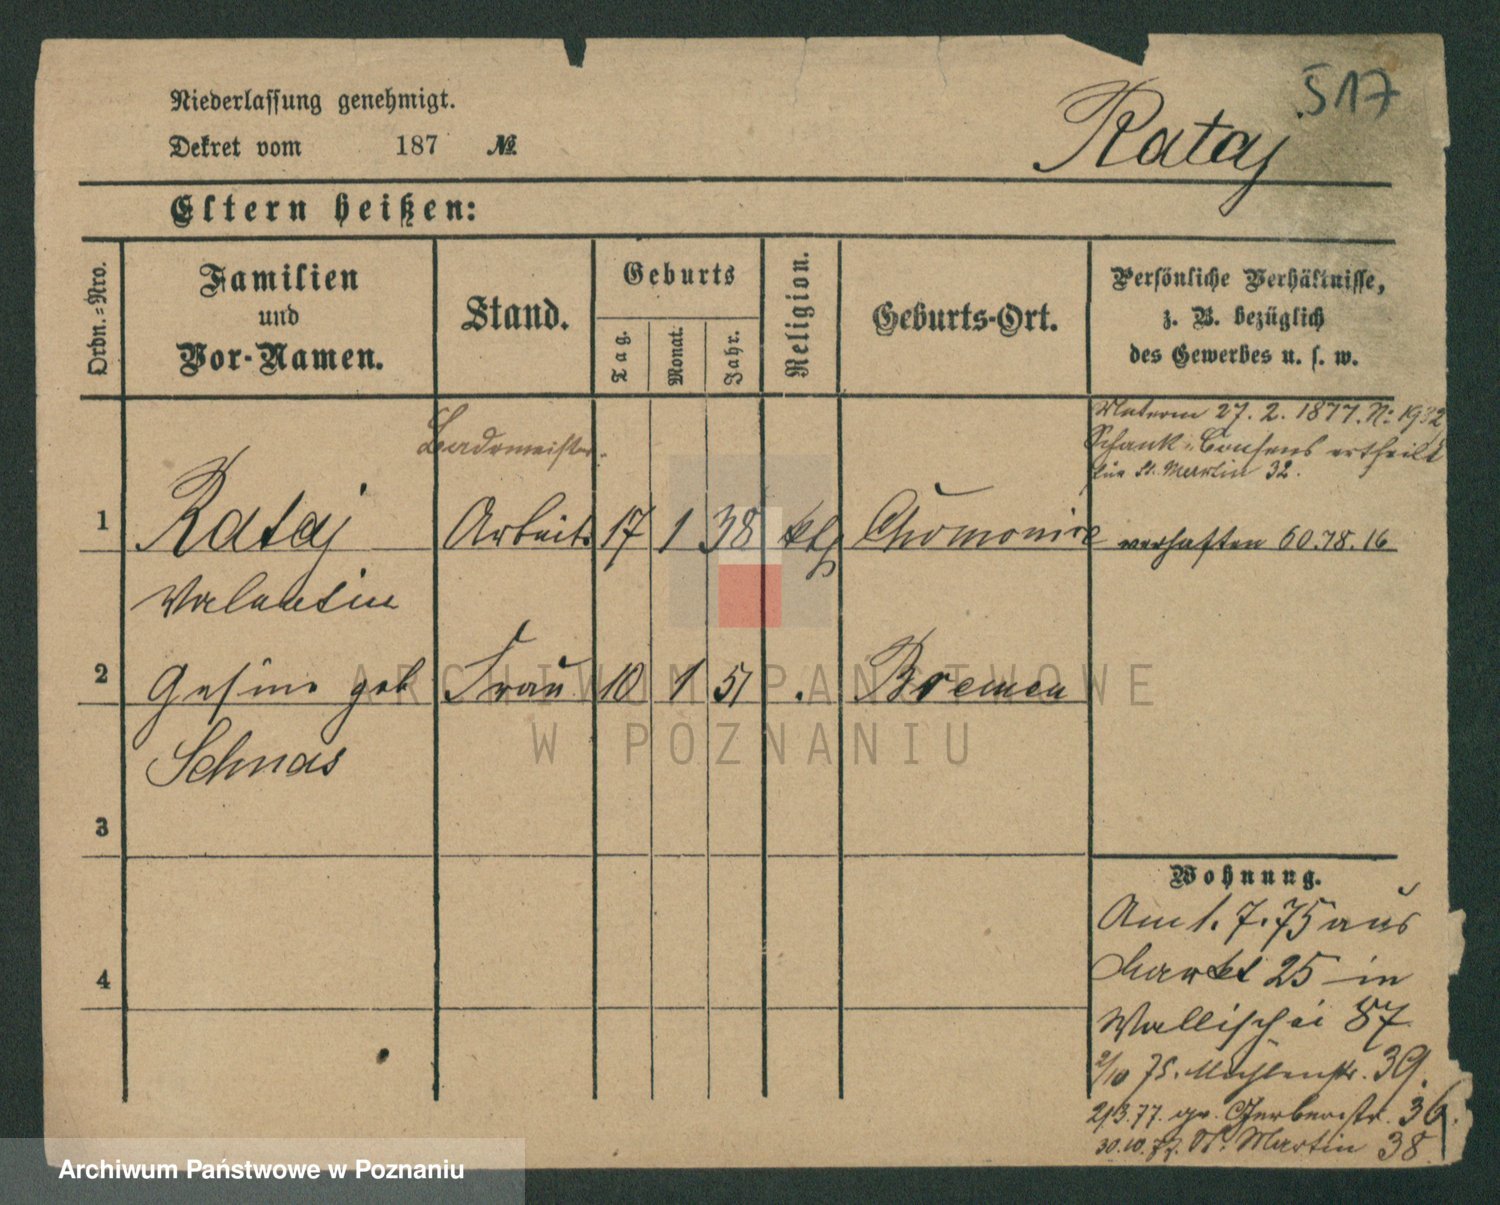 517
Niederlassung genehmigt.
Dekret vom 187 №
Rataj
Eltern heißen:
Ordn.=Nro.
Familien
und
Vor-Namen.
Stand.
Geburts
Tag.
Monat.
Jahr.
Religion.
Geburts-Ort.
Persönliche Verhältnisse,
z. B. bezüglich
des Gewerbes u. s. w.
27. 2. 1877. No 1932
Schank-Consens ertheilt
für St. Martin 32.
Bademeister.
1 Rataj Arbeit. 17 1 38 kth verhaften 60.78.16
Valentin
2 Gesine geb Frau 10 1 51 . Bremen
Schnas
3
4
Wohnung.
Am 1. 7. 75 aus
Markt 25 in
Wallischei 87
2/10 75. Mühlenstr. 39.
2/3.77. gr. Gerberstr. 36.
30.10.77. St. Martin 38
ARCHIWUM PAŃSTWOWE
W POZNANIU
Archiwum Państwowe w Poznaniu